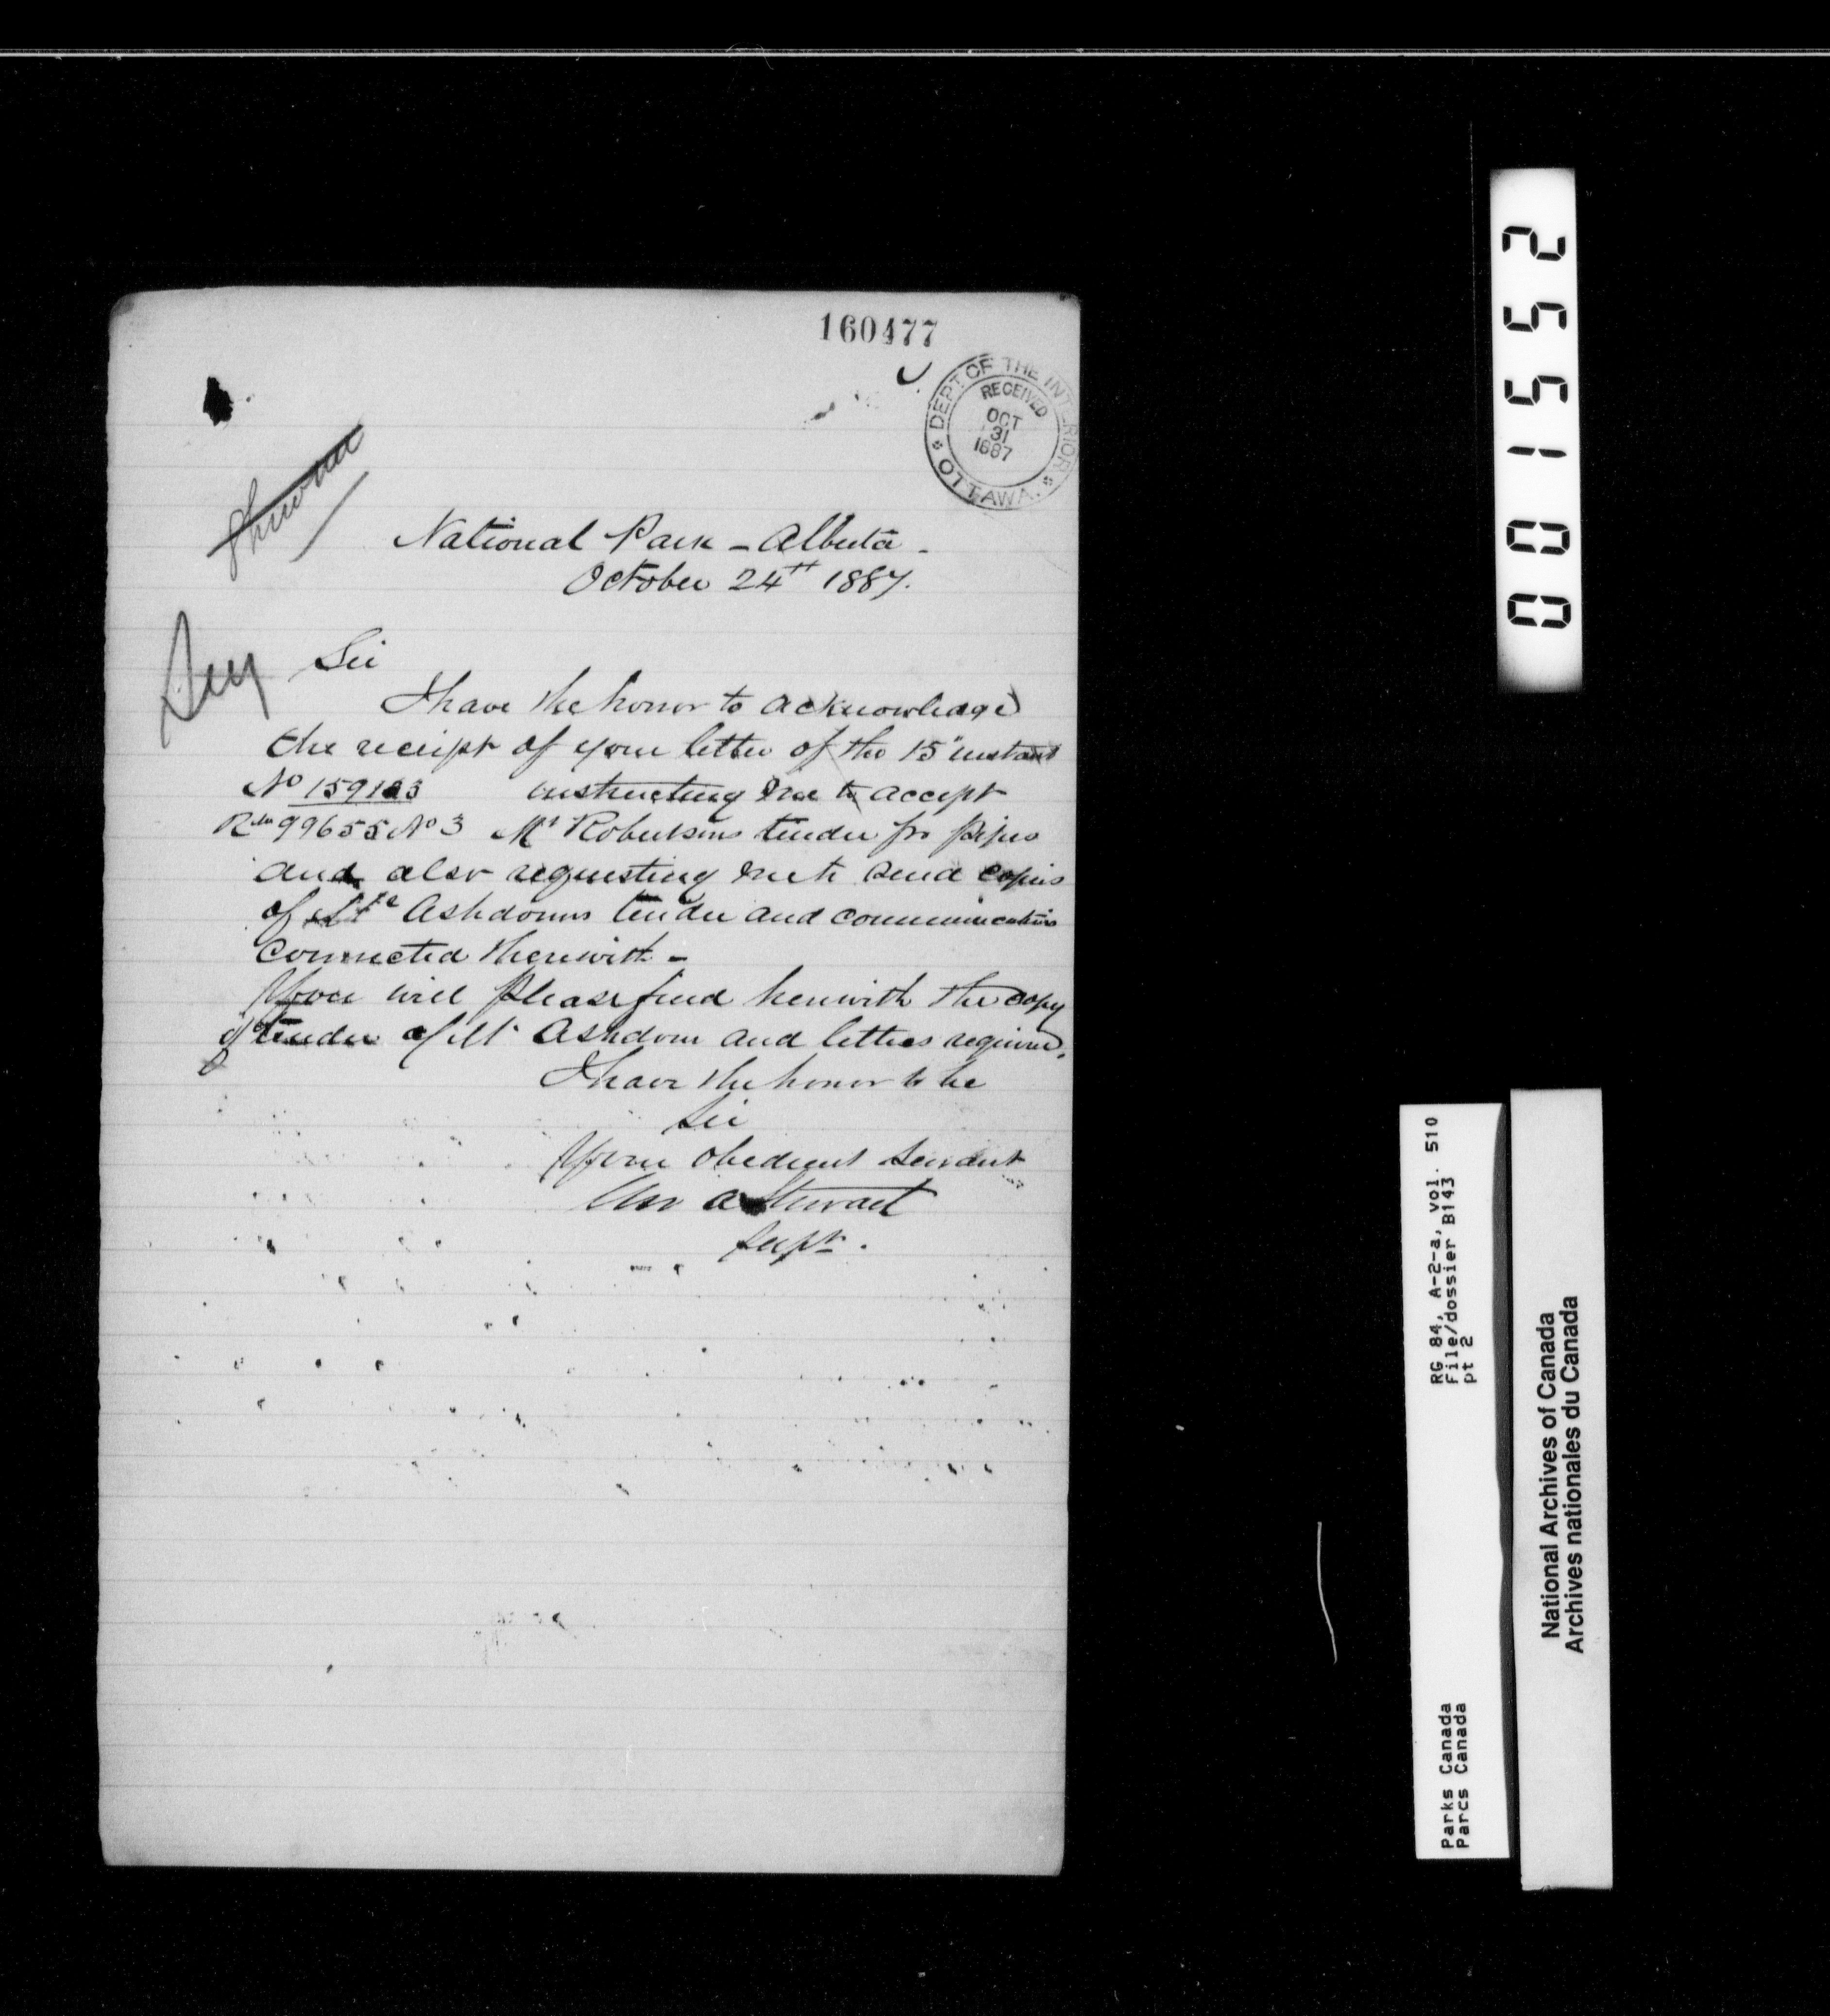 160477
DEPT OF THE INTERIOR
RECEIVED
OCT
31
1887
OTTAWA.
National Park - Alberta -
October 24th 1887.
Sir
I have the honor to acknowledge
the receipt of your letter of the 15" instant
No 159183 instructing me to accept
99655 No 3 Mr Robertsons tender for pipes
and also requesting me to send copies
of Mr Ashdowns tender and communications
connected therewith -
You will please find herewith the copy
of tender of Mr Ashdown and letters required.
I have the honor to be
Sir
Your obedient Servant
A Stewart
Supt.
001552
RG 84, A-2-a, vol. 510
File/dossier B143
pt 2
Parks Canada
Parcs Canada
National Archives of Canada
Archives nationales du Canada